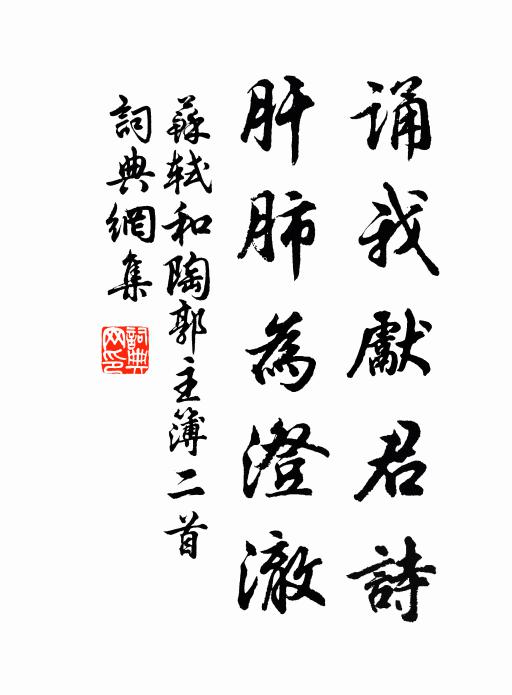 诵我獻君詩
肝肺為澄澈
蘇軾和陶郭主簿二首
詞典網集
詞典网印